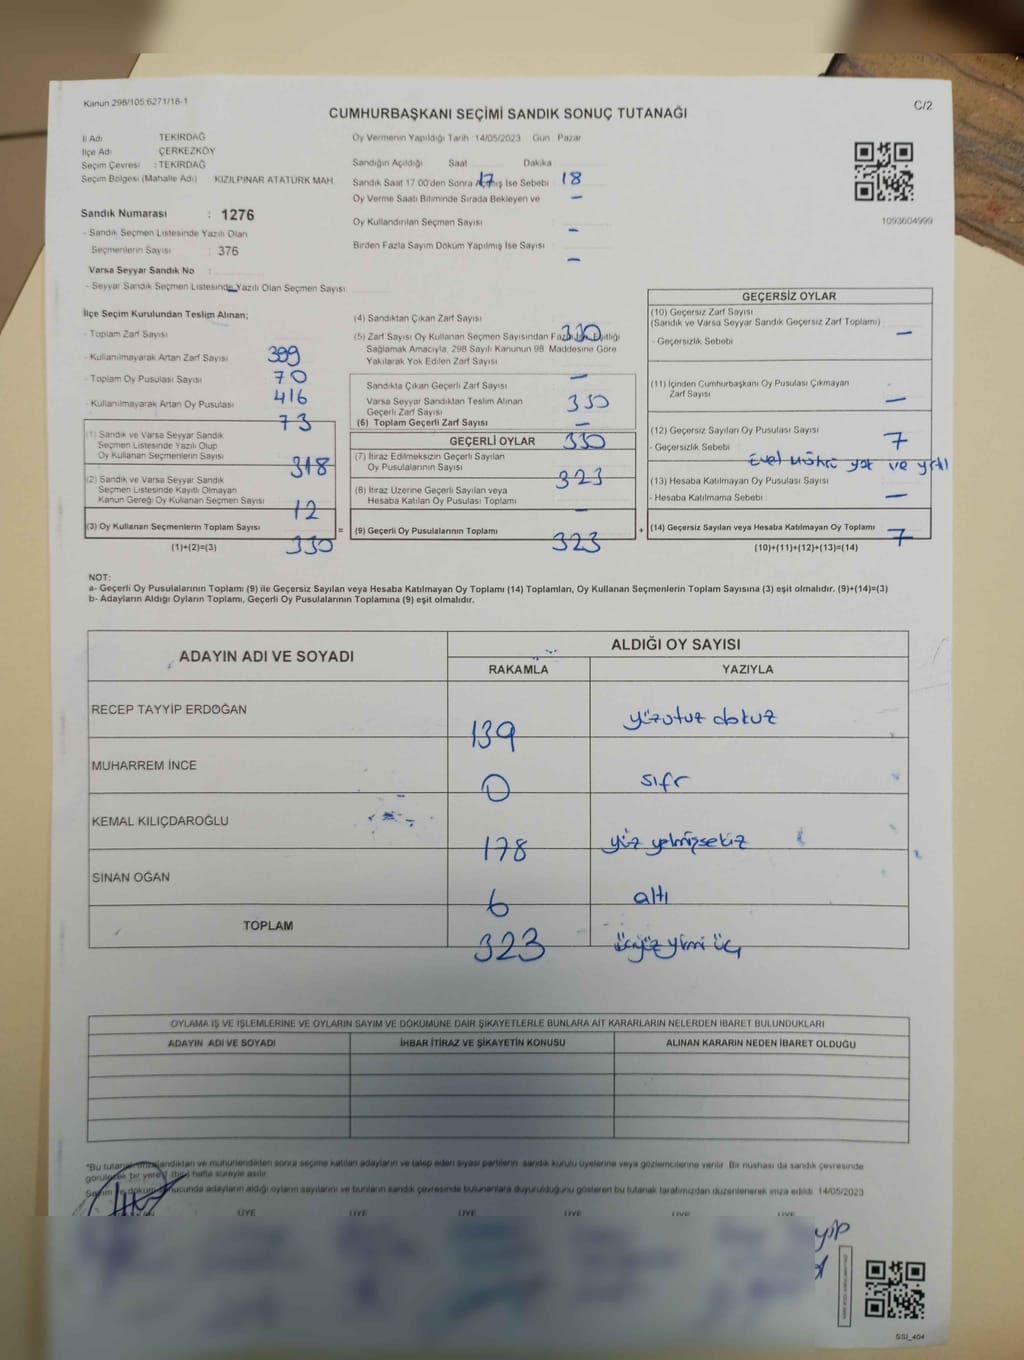 Kanun 298/105 6271/18-1
C/2
CUMHURBAŞKANI SEÇİMİ SANDIK SONUÇ TUTANAĞI
İl Adı TEKİRDAĞ
İlçe Adı ÇERKEZKÖY
Seçim Çevresi : TEKİRDAĞ
Seçim Bölgesi (Mahalle Adı) KIZILPINAR ATATÜRK MAH.
Oy Vermenin Yapıldığı Tarih 14/05/2023 Gün Pazar
Sandığın Açıldığı Saat 17 Dakika 18
Sandık Saat 17 00'den Sonra Açılmış İse Sebebi –
Oy Verme Saati Bitiminde Sırada Bekleyen ve
Oy Kullandırılan Seçmen Sayısı –
Birden Fazla Sayım Döküm Yapılmış İse Sayısı –
1093604999
Sandık Numarası : 1276
- Sandık Seçmen Listesinde Yazılı Olan
Seçmenlerin Sayısı : 376
Varsa Seyyar Sandık No :
- Seyyar Sandık Seçmen Listesinde Yazılı Olan Seçmen Sayısı
İlçe Seçim Kurulundan Teslim Alınan;
- Toplam Zarf Sayısı 399
- Kullanılmayarak Artan Zarf Sayısı 70
- Toplam Oy Pusulası Sayısı 416
- Kullanılmayarak Artan Oy Pusulası 73
(1) Sandık ve Varsa Seyyar Sandık
Seçmen Listesinde Yazılı Olup
Oy Kullanan Seçmenlerin Sayısı 318
(2) Sandık ve Varsa Seyyar Sandık
Seçmen Listesinde Kayıtlı Olmayan
Kanun Gereği Oy Kullanan Seçmen Sayısı 12
(3) Oy Kullanan Seçmenlerin Toplam Sayısı 330
(1)+(2)=(3)
(4) Sandıktan Çıkan Zarf Sayısı 330
(5) Zarf Sayısı Oy Kullanan Seçmen Sayısından Fazla İse, Eşitliği
Sağlamak Amacıyla, 298 Sayılı Kanunun 98 Maddesine Göre
Yakılarak Yok Edilen Zarf Sayısı –
Sandıkta Çıkan Geçerli Zarf Sayısı 330
Varsa Seyyar Sandıktan Teslim Alınan
Geçerli Zarf Sayısı –
(6) Toplam Geçerli Zarf Sayısı 330
GEÇERLİ OYLAR
(7) İtiraz Edilmeksizin Geçerli Sayılan
Oy Pusulalarının Sayısı 323
(8) İtiraz Üzerine Geçerli Sayılan veya
Hesaba Katılan Oy Pusulası Toplamı –
= (9) Geçerli Oy Pusulalarının Toplamı 323
GEÇERSİZ OYLAR
(10) Geçersiz Zarf Sayısı
(Sandık ve Varsa Seyyar Sandık Geçersiz Zarf Toplamı) –
- Geçersizlik Sebebi
(11) İçinden Cumhurbaşkanı Oy Pusulası Çıkmayan
Zarf Sayısı –
(12) Geçersiz Sayılan Oy Pusulası Sayısı 7
- Geçersizlik Sebebi
yok ve
(13) Hesaba Katılmayan Oy Pusulası Sayısı –
- Hesaba Katılmama Sebebi
+ (14) Geçersiz Sayılan veya Hesaba Katılmayan Oy Toplamı 7
(10)+(11)+(12)+(13)=(14)
NOT:
a- Geçerli Oy Pusulalarının Toplamı (9) ile Geçersiz Sayılan veya Hesaba Katılmayan Oy Toplamı (14) Toplamları, Oy Kullanan Seçmenlerin Toplam Sayısına (3) eşit olmalıdır. (9)+(14)=(3)
b- Adayların Aldığı Oyların Toplamı, Geçerli Oy Pusulalarının Toplamına (9) eşit olmalıdır.
ADAYIN ADI VE SOYADI
ALDIĞI OY SAYISI
RAKAMLA YAZIYLA
RECEP TAYYİP ERDOĞAN 139 yüzotuz dokuz
MUHARREM İNCE 0 sıfr
KEMAL KILIÇDAROĞLU 178 yüz yetmişsekiz
SİNAN OĞAN 6 altı
TOPLAM 323 üçyüz yirmi üç
OYLAMA İŞ VE İŞLEMLERİNE VE OYLARIN SAYIM VE DÖKÜMÜNE DAİR ŞİKAYETLERLE BUNLARA AİT KARARLARIN NELERDEN İBARET BULUNDUKLARI
ADAYIN ADI VE SOYADI İHBAR İTİRAZ VE ŞİKAYETİN KONUSU ALINAN KARARIN NEDEN İBARET OLDUĞU
*Bu tutanak imzalandıktan ve mühürlendikten sonra seçime katılan adayların ve talep eden siyasi partilerin sandık kurulu üyelerine veya gözlemcilerine verilir. Bir nüshası da sandık çevresinde
görülecek bir yere 1 (bir) hafta süreyle asılır.
Seçim ve döküm sonucunda adayların aldığı oyların sayılarını ve bunların sandık çevresinde bulunanlara duyurulduğunu gösteren bu tutanak tarafımızdan düzenlenerek imza edildi. 14/05/2023
ÜYE ÜYE ÜYE ÜYE ÜYE ÜYE
SSI_404